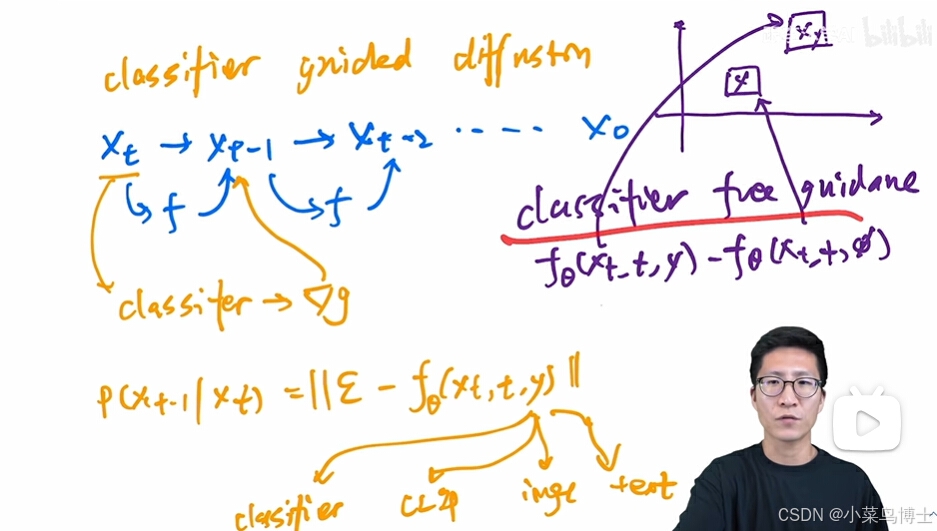 classifier guided diffuston
x_t → x_t-1 → x_t-2 ····· x_0
f f
classifer → ∇g
x
φ
classifier free guidane
f_θ(x_t, t, y) - f_θ(x_t, t, φ)
p(x_t-1 | x_t) = ||Σ - f_θ(x_t, t, y)||
classifier CLIP imge text
bilibili
CSDN @小菜鸟博士